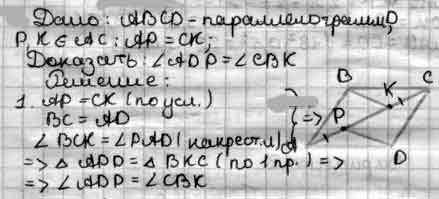 Дано: ABCD - параллелограмм,
P, K ∈ AC; AP = CK;
Доказать: ∠ADP = ∠CBK
Решение:
1. AP = CK (по усл.)
BC = AD
∠BCK = ∠PAD (накрест. л)
=> △APD = △BKC (по 1 пр.) =>
=> ∠ADP = ∠CBK
} =>
B
C
K
P
A
D